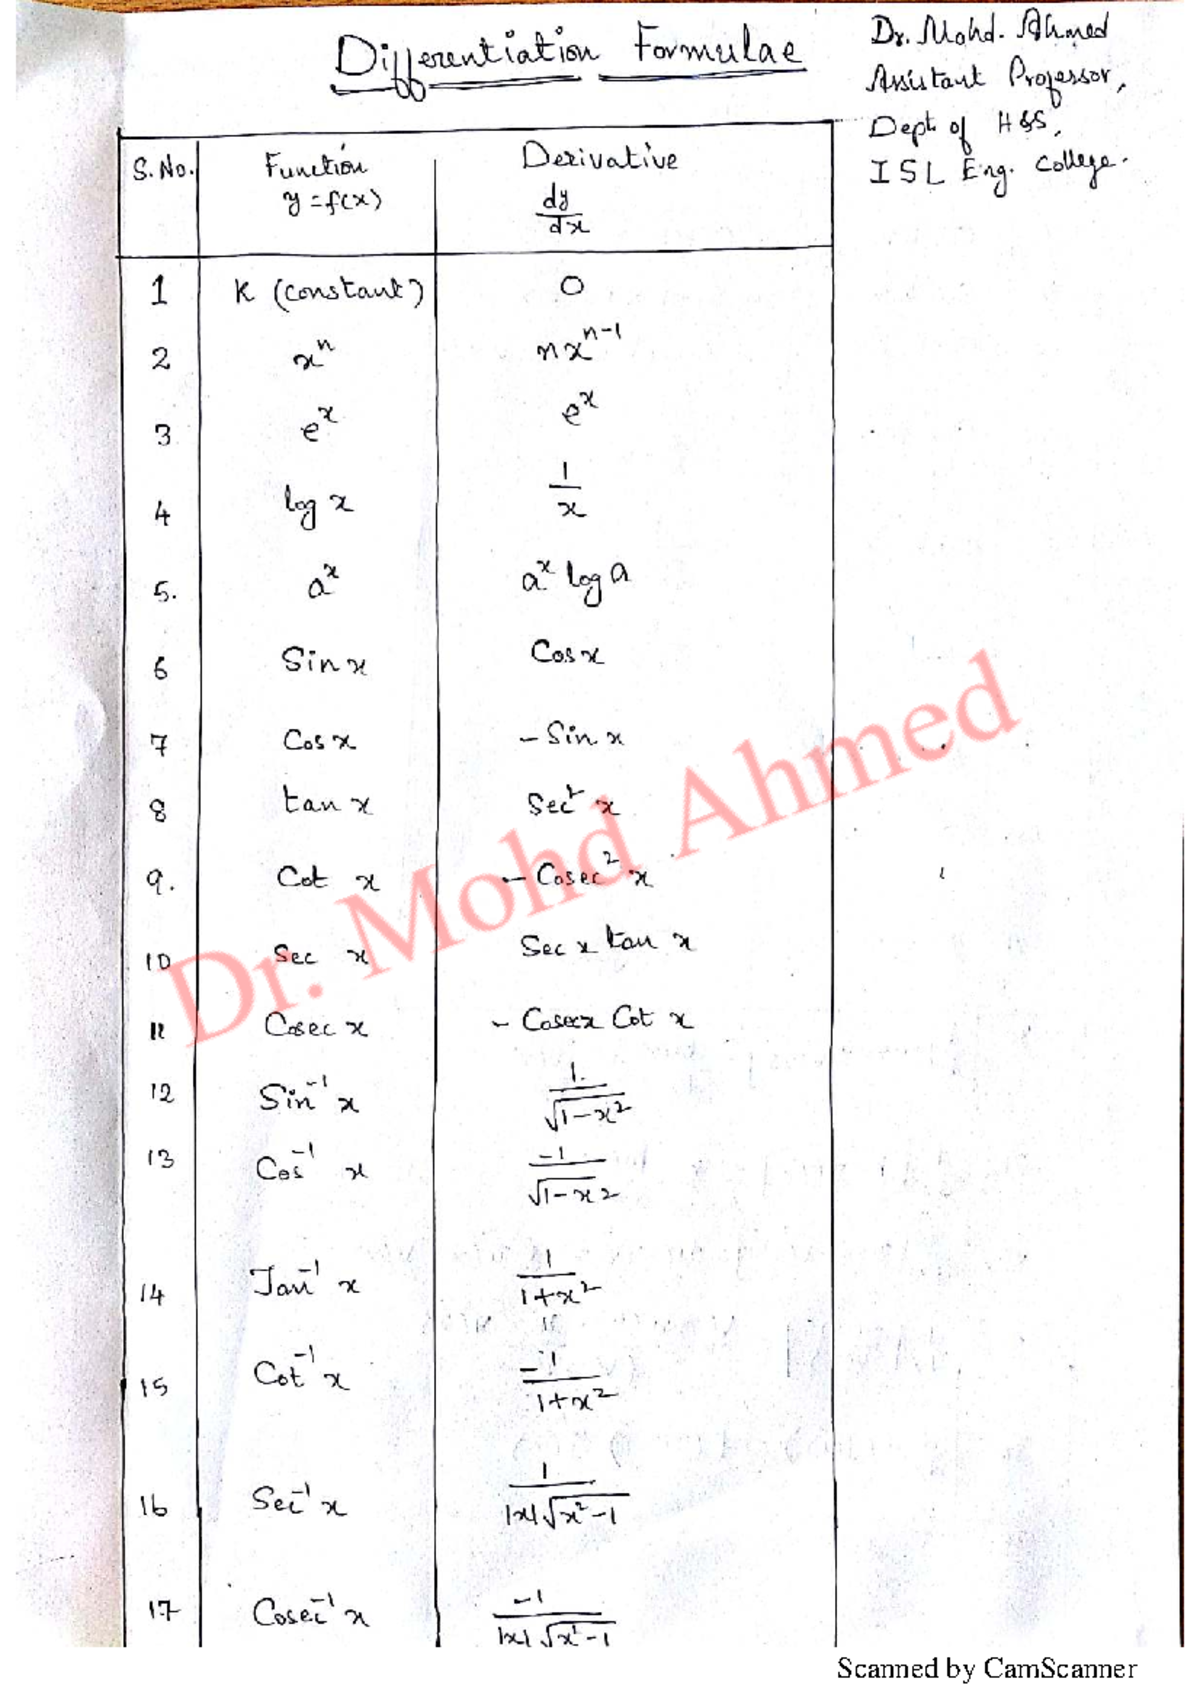 Differentiation Formulae
Dr. Mohd. Ahmed
Assistant Professor,
Dept of H&S,
ISL Eng. College.
S.No. Function y=f(x) Derivative dy/dx
1 K (constant) 0
2 xⁿ nxⁿ⁻¹
3 eˣ eˣ
4 log x 1/x
5. aˣ aˣ log a
6 Sin x Cos x
7 Cos x - Sin x
8 tan x Sec² x
9. Cot x - Cosec² x
10 Sec x Sec x tan x
11 Cosec x - Cosec x Cot x
12 Sin⁻¹ x 1/√(1-x²)
13 Cos⁻¹ x -1/√(1-x²)
14 Tan⁻¹ x 1/(1+x²)
15 Cot⁻¹ x -1/(1+x²)
16 Sec⁻¹ x 1/(|x|√(x²-1))
17 Cosec⁻¹ x -1/(|x|√(x²-1))
Dr. Mohd Ahmed
Scanned by CamScanner